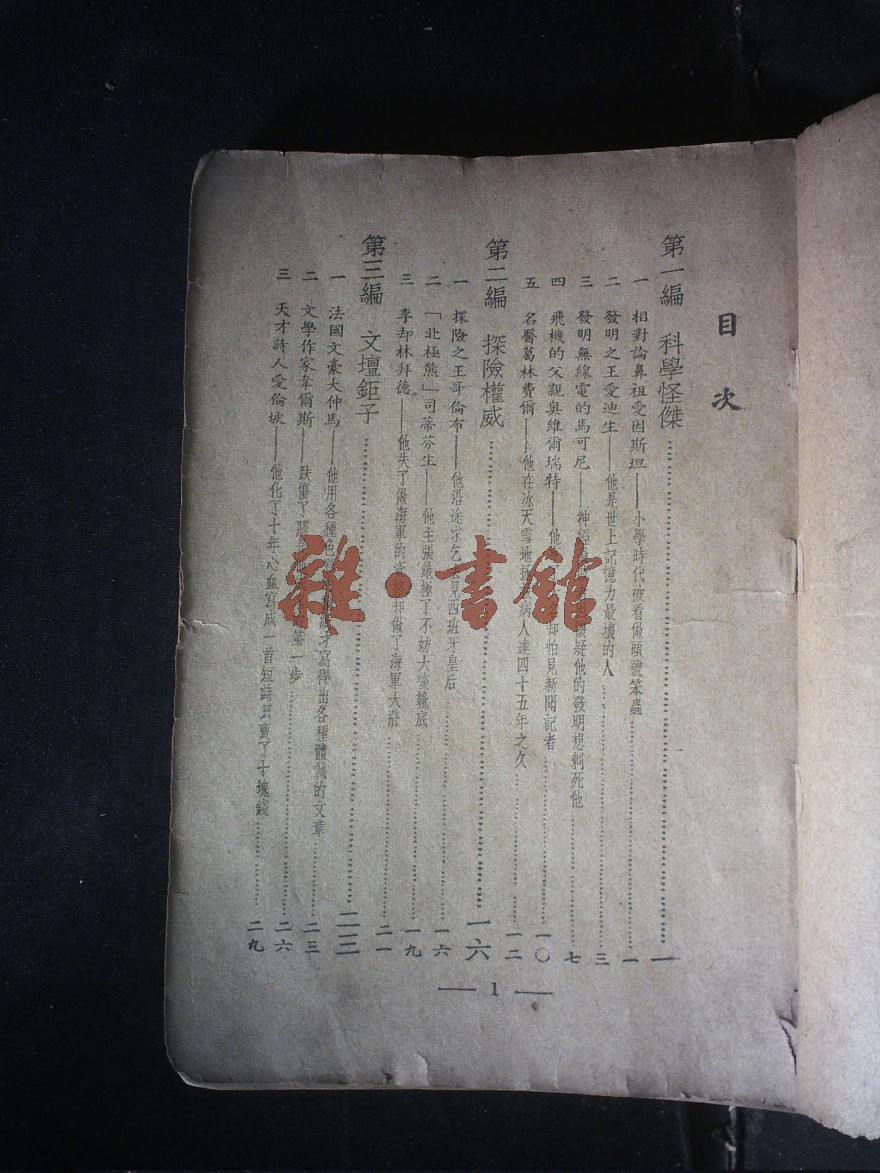 目次
第一編 科學怪傑……一
一 相對論鼻祖愛因斯坦——小學時代被看做頭號笨蟲……一
二 發明之王愛迪生——他是世上記憶力最壞的人……三
三 發明無線電的馬可尼——神 疑他的發明想輒死他……七
四 飛機的父親奧維爾瑞特——他 却怕見新聞記者……一〇
五 名醫葛林費爾——他在冰天雪地 病人達四十五年之久……一二
第二編 探險權威……一六
一 探險之王哥倫布——他沿途求乞 見西班牙皇后……一六
二 「北極熊」司蒂芬生——他主張餓極了不妨大啖靴底……一九
三 李却林拜德——他失了做海軍的 却做了海軍大將……二一
第三編 文壇鉅子……二三
一 法國文豪大仲馬——他用各種色 才寫得出各種體裁的文章……二三
二 文學作家韋爾斯——跌傷了腿 第一步……二六
三 天才詩人愛倫坡——他化了十年心血寫成一首短詩只賣了十塊錢……二九
— 1 —
雜·書館